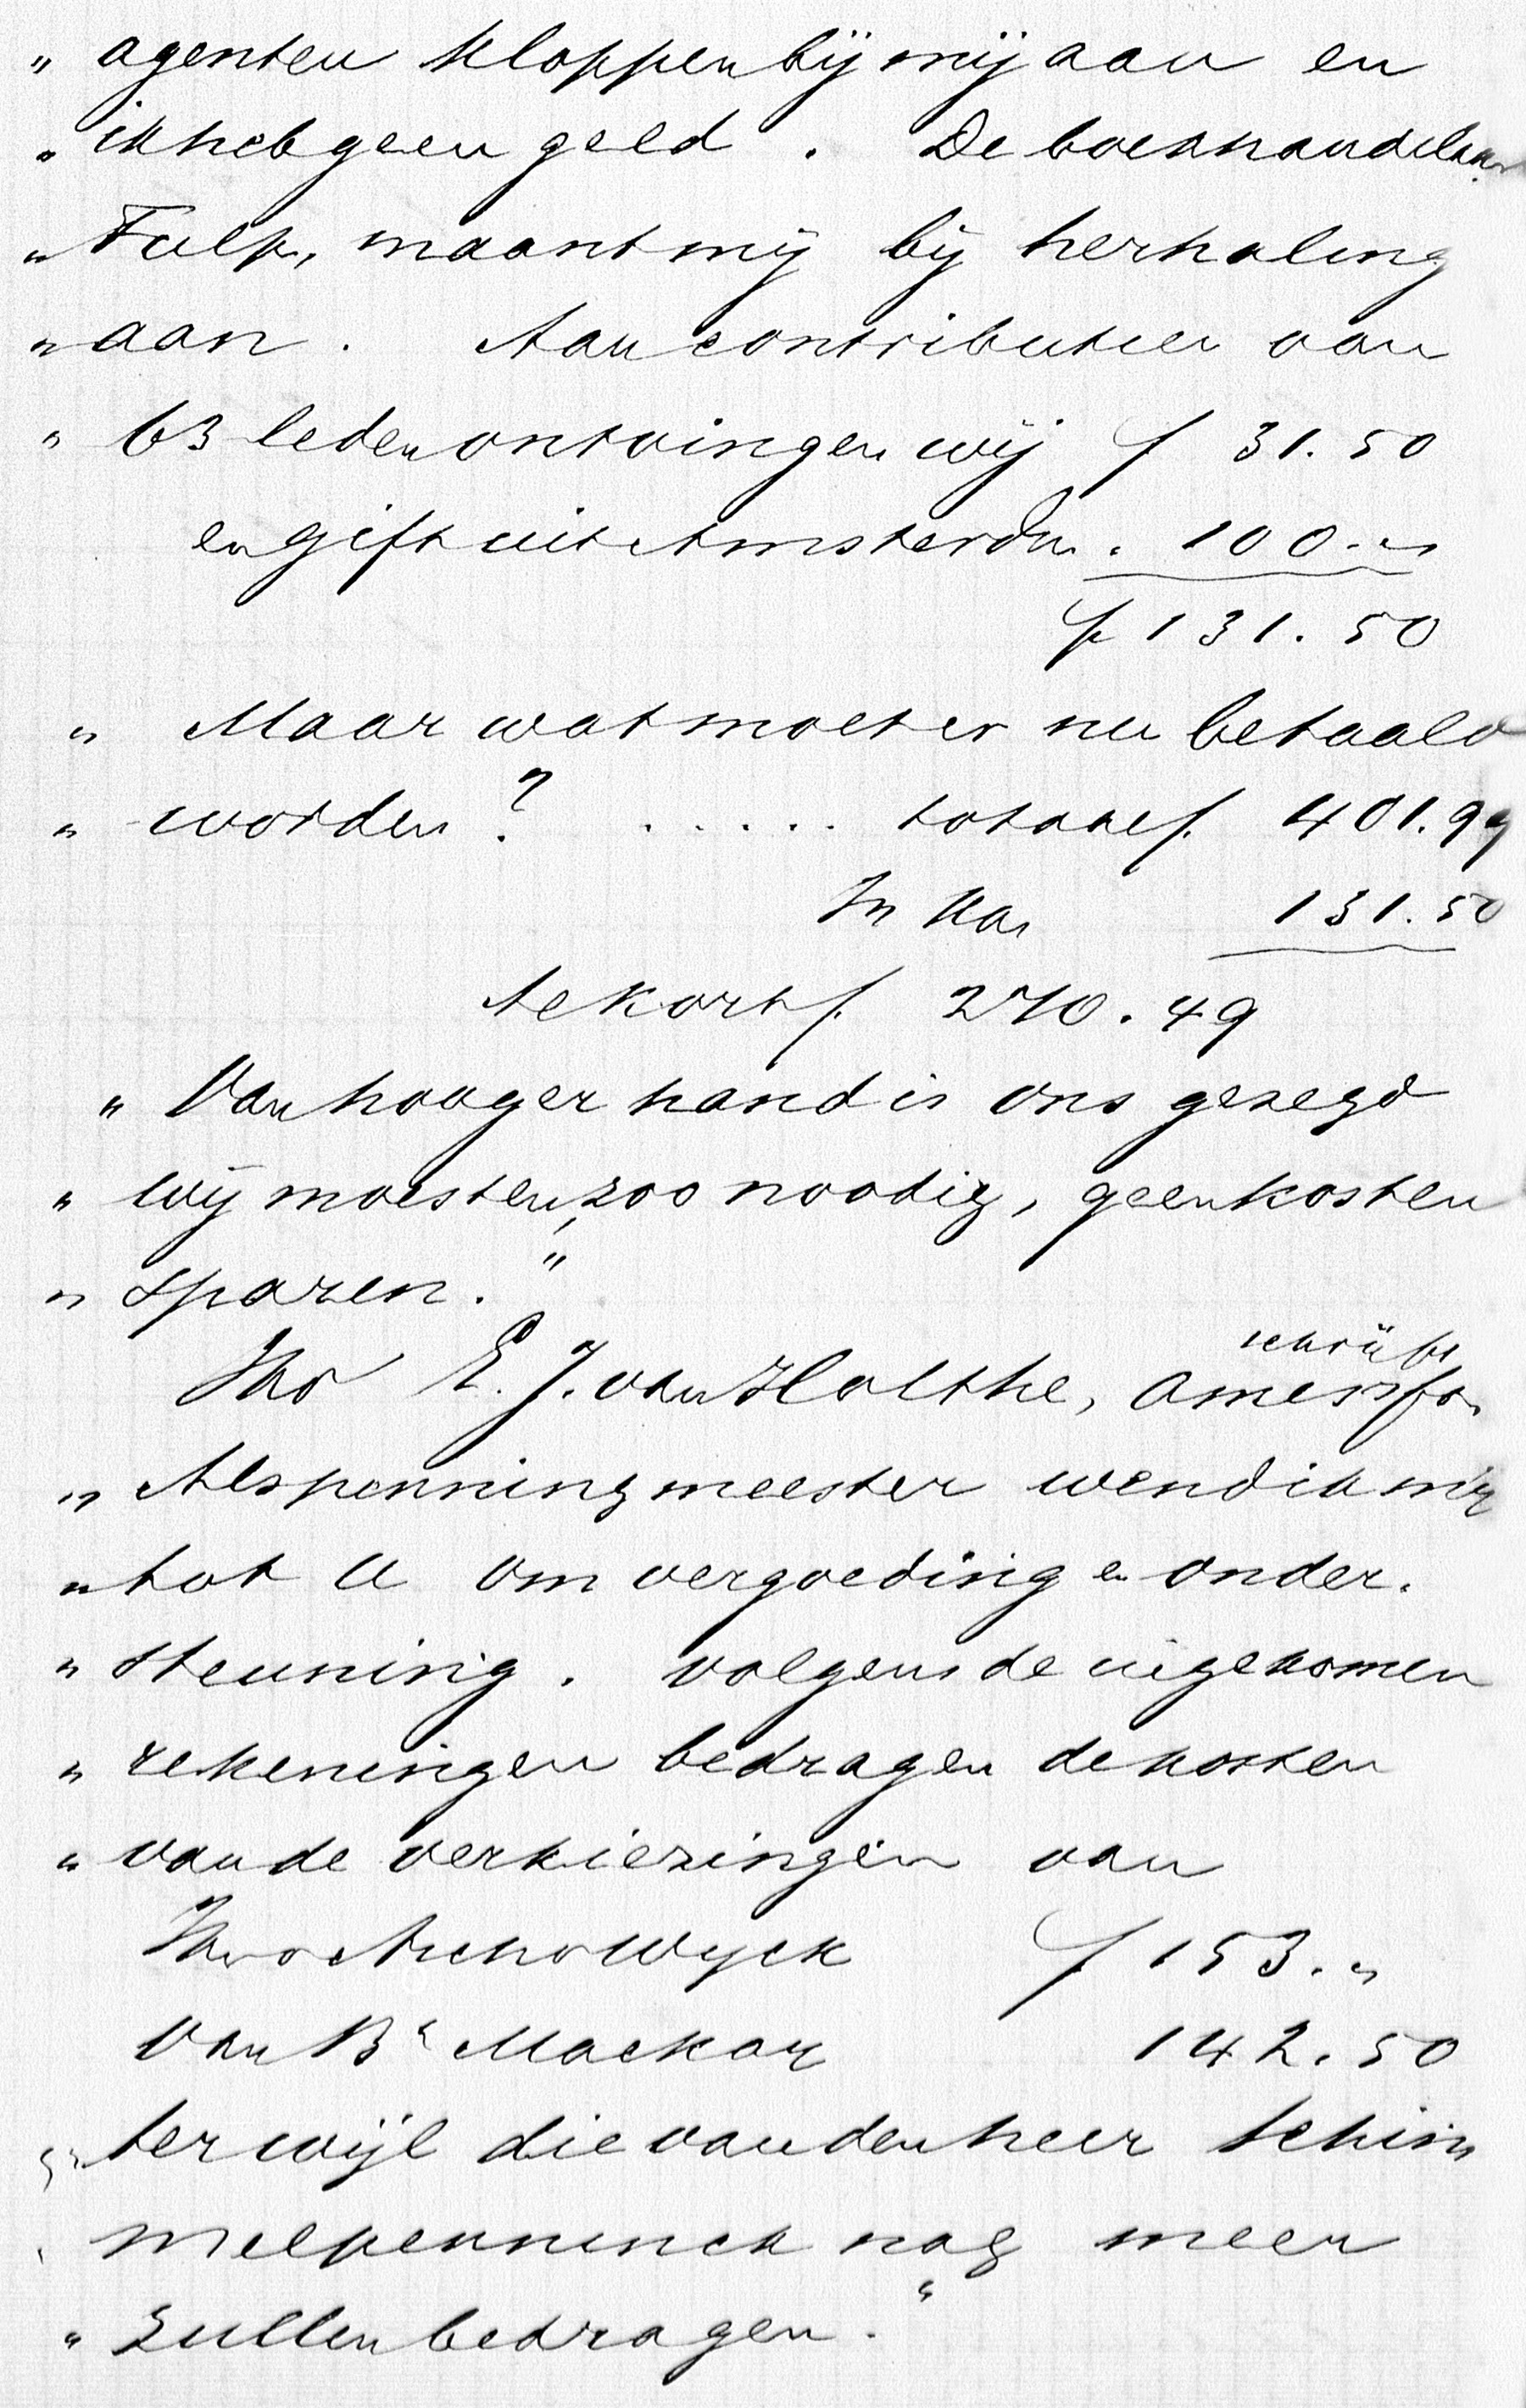 „ agenten kloppen bij mij aan en
„ ik heb geen geld . De boekhandelaar
„ Tulp, maant mij bij herhaling
„ aan . Aan contributien van
„ 63 leden ontvingen wij f 31.50
en gift uit Amsterdm. „ 100.„
f 131.50
„ Maar wat moet er nu betaald
„ worden ? . . . . . totaal f. 401.99
In kas 131.50
tekort f. 270.49
„ Van hooger hand is ons gezegd
„ wij moesten, zoo noodig, geen kosten
„ sparen."
schrijft
Jhr E. J. van Holthe, Amersfo.
„ Als penningmeester wend ik mij
„ tot U om vergoeding en onder.
„ steuning . volgens de ingekomen
„ rekeningen bedragen de kosten
„ van de verkiezingen van
Jhr van Asch v Wyck f 153.„
van Br Mackay 142.50
„ terwijl die van den heer Schim
„ melpenninck nog meer
„ zullen bedragen."